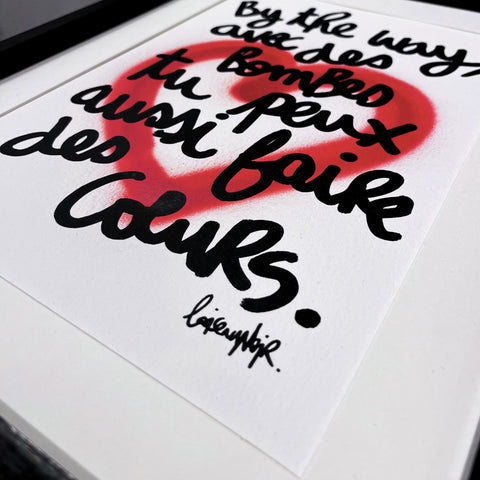 By the way,
avec des
Bombes
tu peux
aussi faire
des
Cœurs.